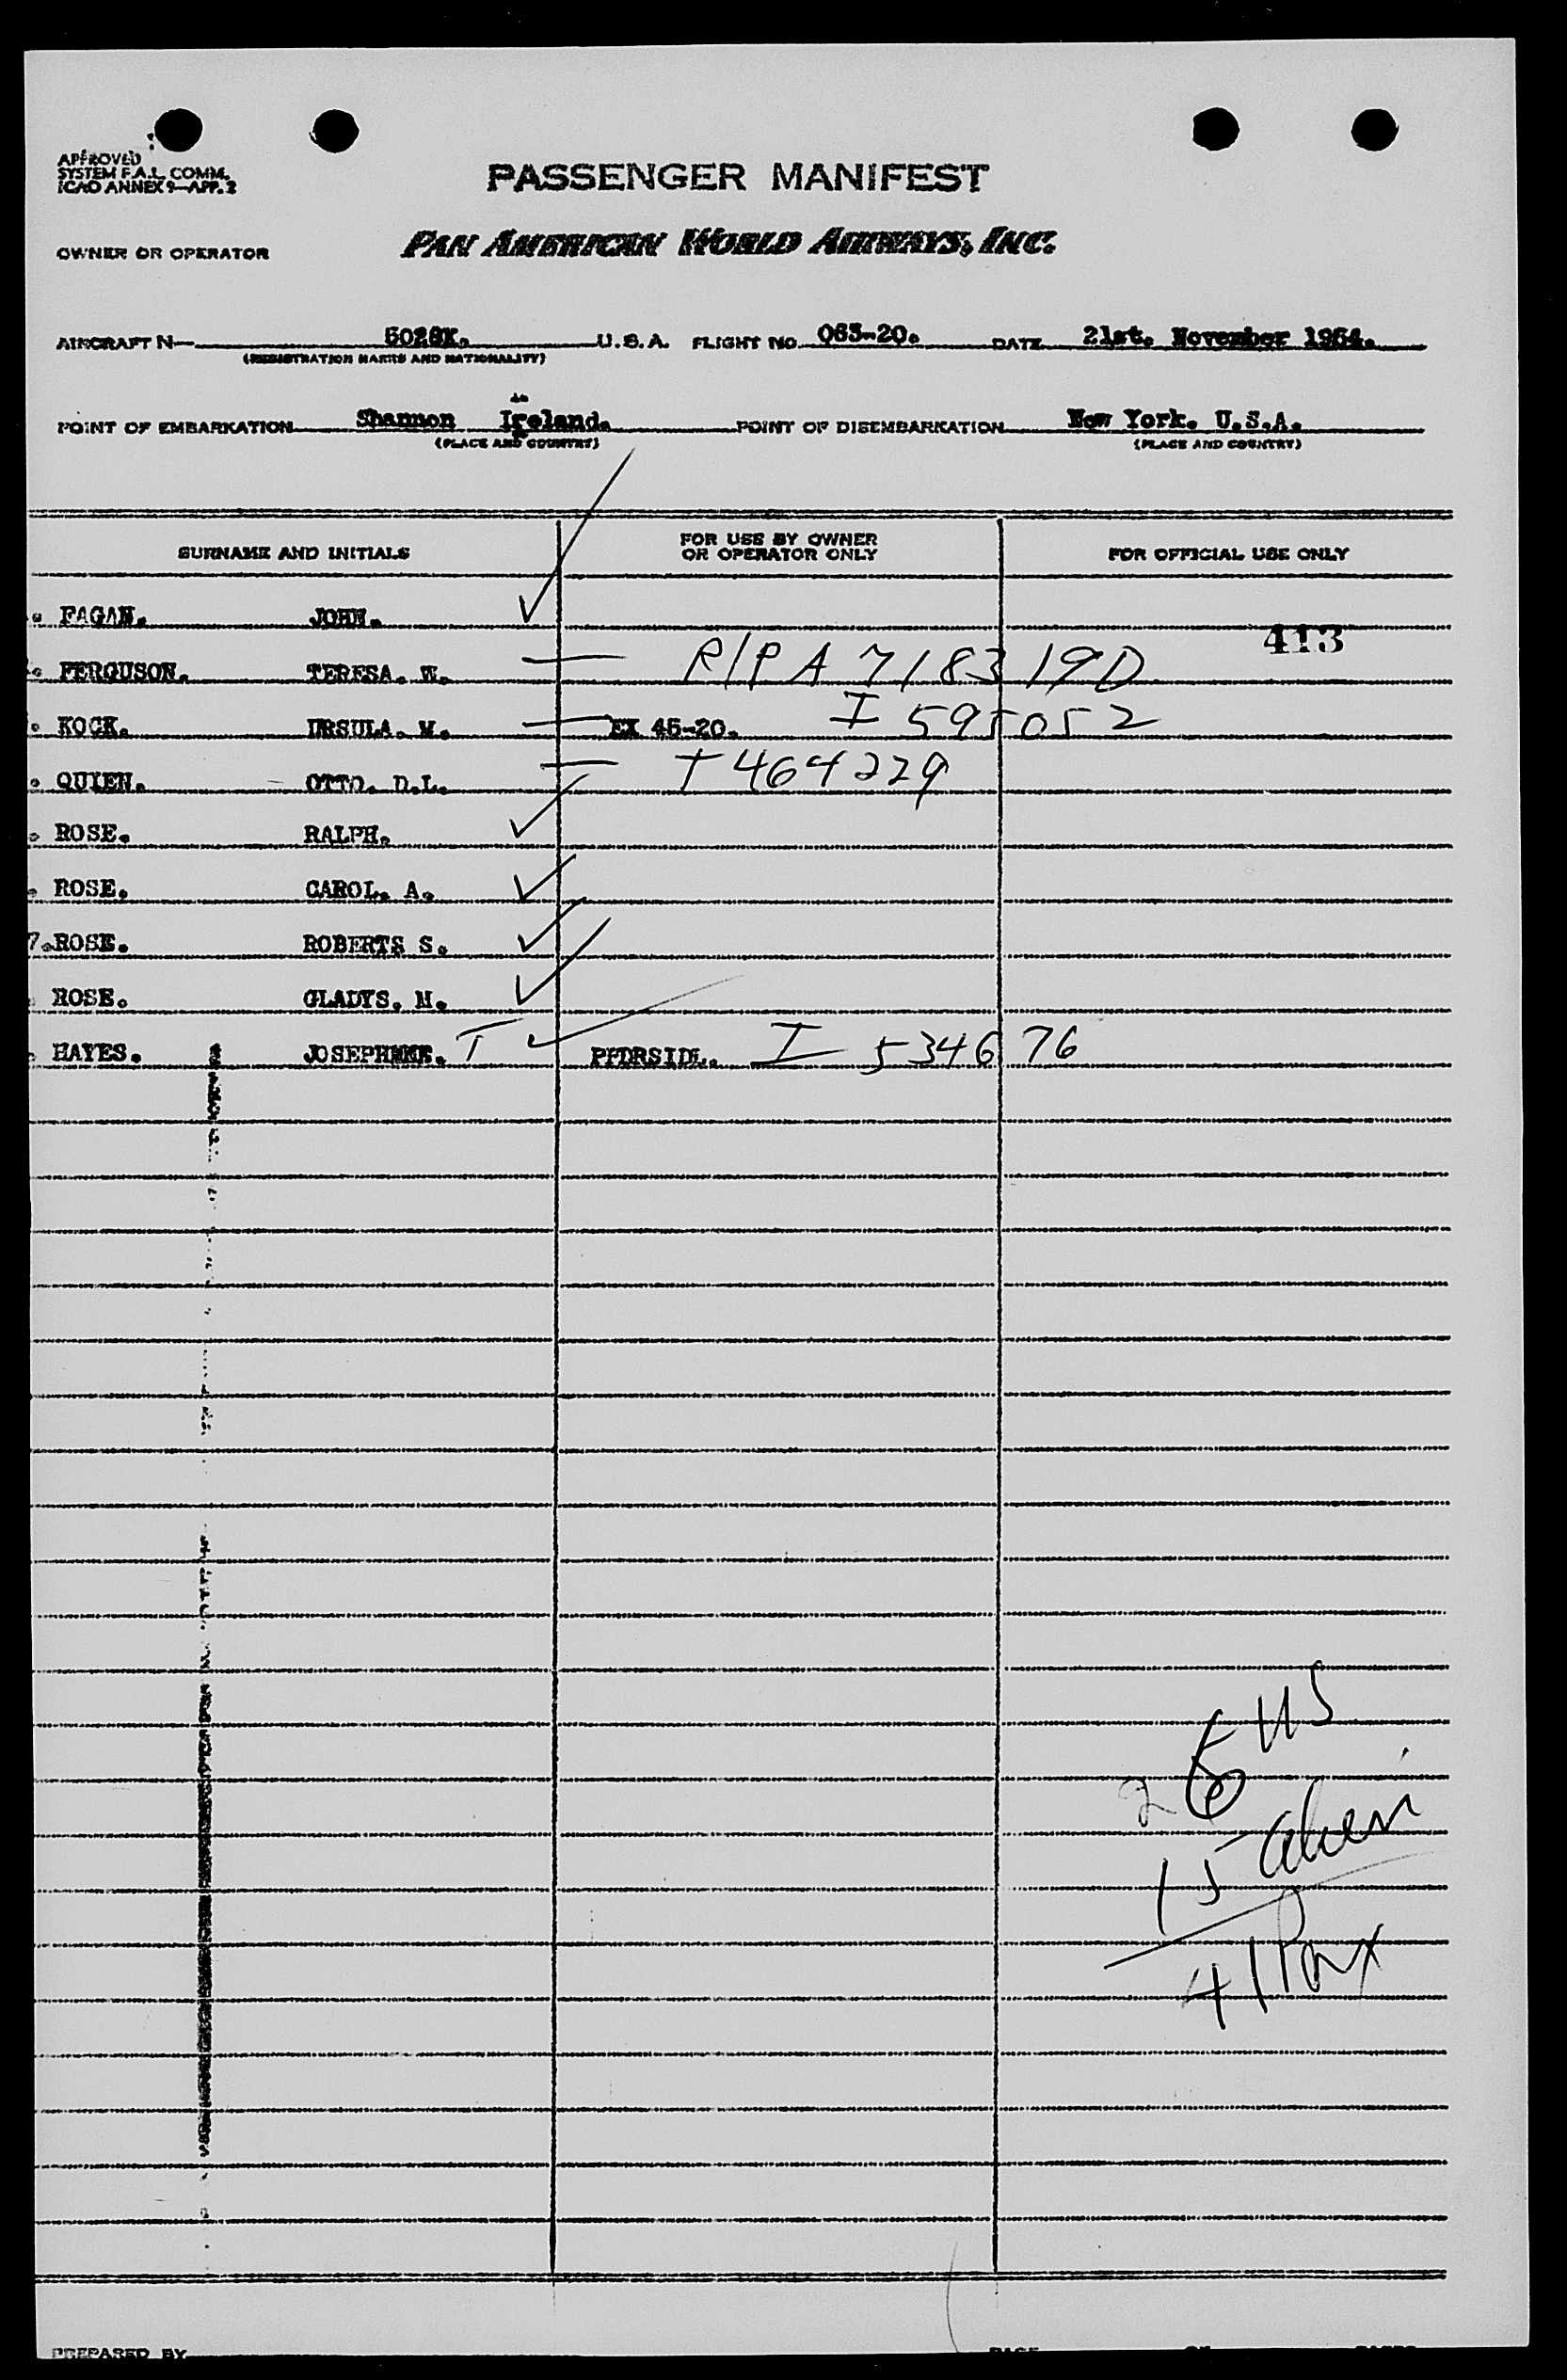 APPROVED
SYSTEM F.A.L. COMM.
ICAO ANNEX 9—APP. 2
PASSENGER MANIFEST
OWNER OR OPERATOR PAN AMERICAN WORLD AIRWAYS, INC.
AIRCRAFT N— 5026K. U.S.A. FLIGHT NO. 063-20. DATE 21st. November 1954.
(REGISTRATION MARKS AND NATIONALITY)
POINT OF EMBARKATION Shannon Ireland. POINT OF DISEMBARKATION New York. U.S.A.
(PLACE AND COUNTRY) (PLACE AND COUNTRY)
SURNAME AND INITIALS FOR USE BY OWNER OR OPERATOR ONLY FOR OFFICIAL USE ONLY
FAGAN. JOHN. ✓
413
FERGUSON. TERESA. W. — R/P A 7183190
KOCK. URSULA. M. — EX 45-20. I 595052
QUIEN. OTTO. D.L. — T 464229
ROSE. RALPH. ✓
ROSE. CAROL. A. ✓
7. ROSE. ROBERTS S. ✓
ROSE. GLADYS. M. ✓
HAYES. T ✓ PPDRSIDL. I 534676
26 US
15 alien
41 Pax
PREPARED BY PAGE OF PAGES